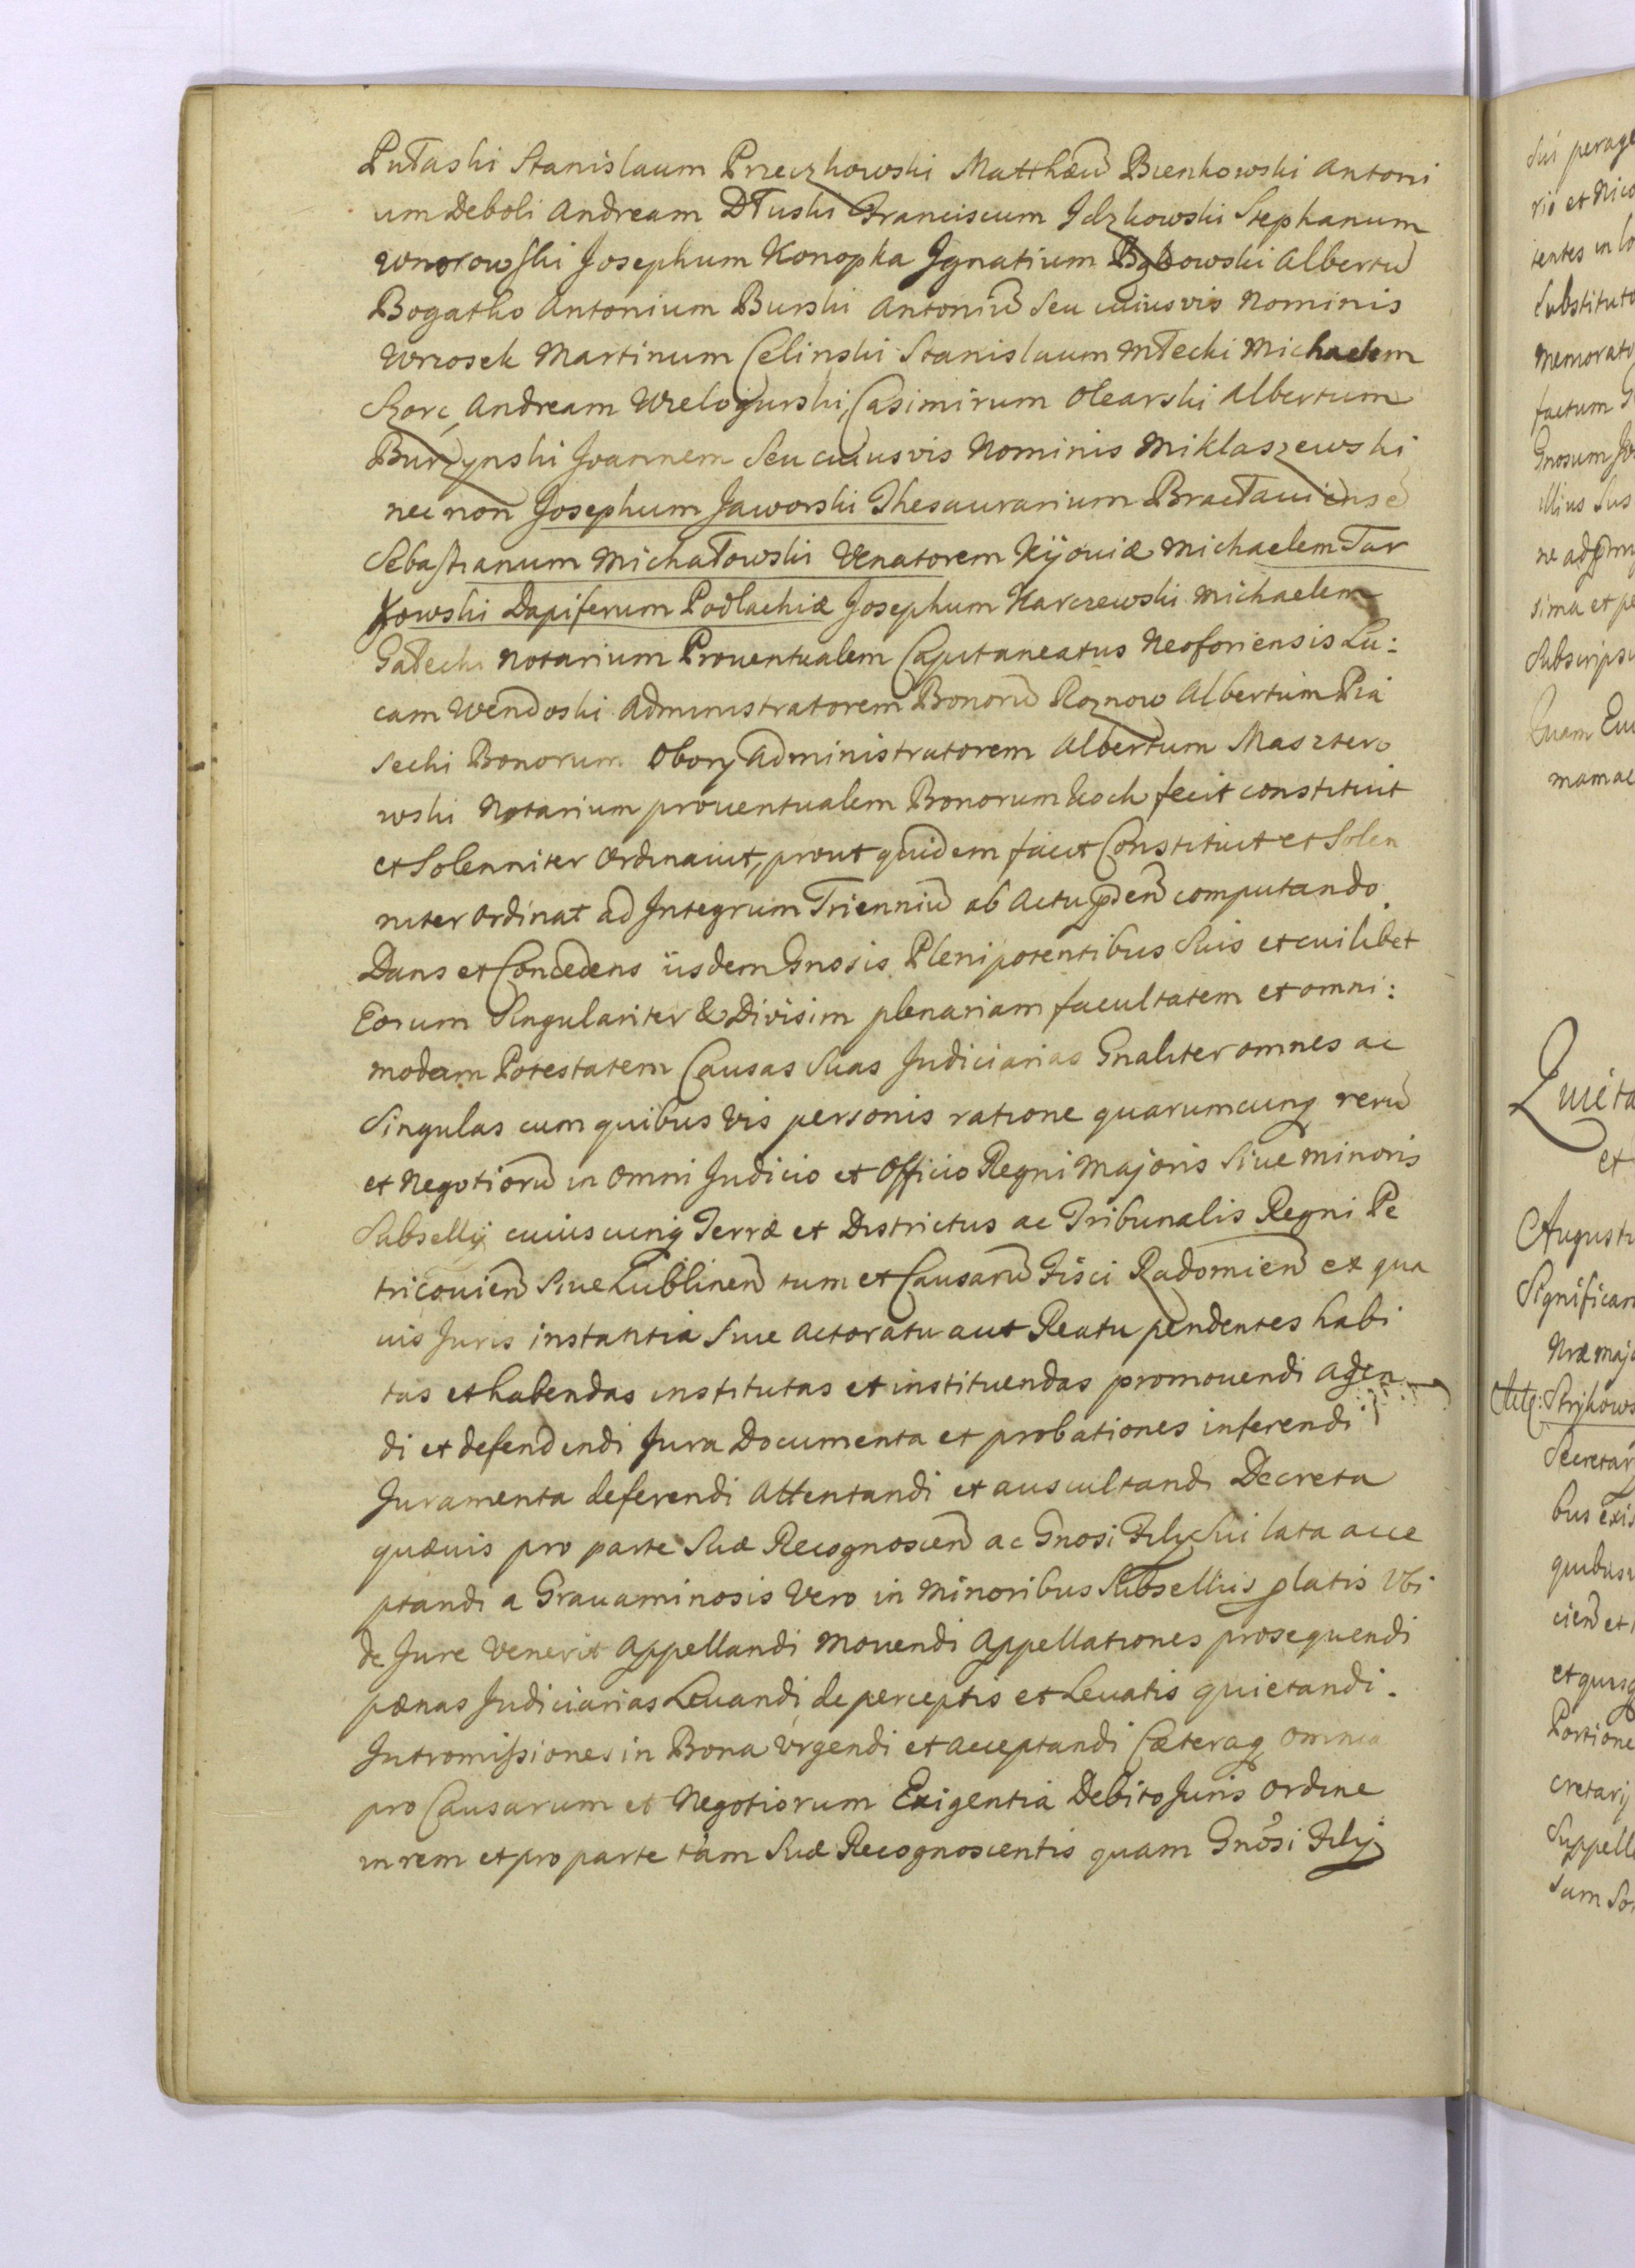 Pułaski Stanislaum Przeczkowski Matthæū Bienkowski Antoni
um Deboli Andream Dłuski Franciscum Idzkowski Stephanum
Wnorowski Josephum Konopka Ignatium Bąkowski Albertū
Bogatko Antonium Burski Antoniū seu cuiusvis Nominis
Wrzosek Martinum Celinski Stanislaum Młecki Michaelem
Szorc, Andream Wielogurski, Casimirum Olearski Albertum
Burzynski Joannem seu cuiusvis Nominis Miklaszewski
nec non Josephum Jaworski Thesaurarium Bracłauiensē
Sebastianum Michałowski Venatorem Kijouiæ Michaelem Tar
kowski Dapiferum Podlachiæ Josephum Karczewski Michaelem
Gałecki Notarium Prouentualem Capitaneatus Neoforiensis Lu:
cam Wendoski Administratorem Bonorū Roznow Albertum Pia
secki Bonorum Obory Administratorem Albertum Masztero
wski Notarium prouentualem Bonorum Kock fecit constituit
et Solenniter Ordinauit, prout quidem facit Constituit et Solen
niter Ordinat ad Integrum Trienniū ab Actu pden̄ computando.
Dans et Concedens iisdem Gnosis Plenipotentibus Suis et cuilibet
Eorum Singulariter & Divisim plenariam facultatem et omni:
modam Potestatem Causas Suas Judiciarias Gnaliter omnes ac
Singulas cum quibus Vis personis ratione quarumcunq rerū
et Negotiorū in Omni Judicio et Officio Regni Majoris Siue minoris
Subsellij cuiuscunq Terræ et Districtus ac Tribunalis Regni Pe
tricouien̄ Siue Lublinen̄ tum et Causarū Fisci Radomien̄ ex qua
uis Juris instantia Siue Actoratu aut Reatu pendentes habi
tas et habendas institutas et instituendas promouendi Agen
di et defendendi Jura Documenta et probationes inferendi
Juramenta deferendi Attentandi et auscultandi Decreta
quæuis pro parte Suæ Recognoscen̄ ac Gnosi Filij Sui lata acce
ptandi a Grauaminosis Vero in Minoribus Subsellijs platis Vbi
de Jure Venerit Appellandi Mouendi Appellationes prosequendi
pænas Judiciarias Leuandi, de perceptis et Leuatis quietandi.
Intromissiones in Bona Vrgendi et acceptandi Cæteraq Omnia
pro Causarum et Negotiorum Exigentia Debito Juris Ordine
in rem et pro parte tam Suæ Recognoscentis quam Gnosi Filij